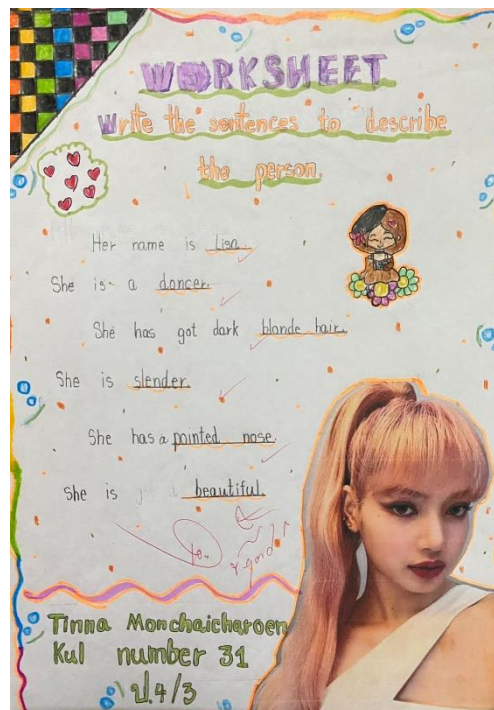 WORKSHEET
Write the sentences to describe
the person.
Her name is Lisa.
She is a dancer.
She has got dark blonde hair.
She is slender.
She has a pointed nose.
She is beautiful.
v.good
Tinna Monchaicharoen
Kul number 31
ป.4/3